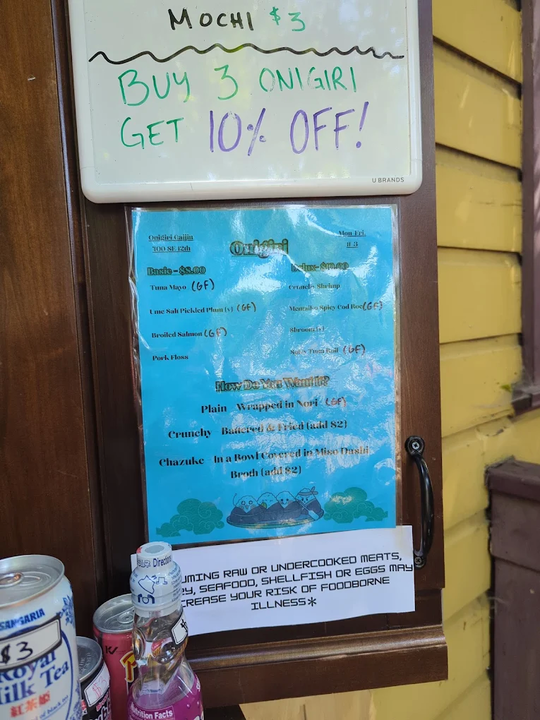 MOCHI $3
BUY 3 ONIGIRI
GET 10% OFF!
U BRANDS
Onigiri Gaijin
700 SE 12th
Onigiri
Mon-Fri
11-3
Basic - $8.00
Tuna Mayo (GF)
Ume Salt Pickled Plum (v) (GF)
Broiled Salmon (GF)
Pork Floss
Crunchy Shrimp
Mentaiko Spicy Cod Roe (GF)
Shroom (v)
Spicy Tuna Roll (GF)
How Do You Want it?
Plain - Wrapped in Nori (GF)
Crunchy - Battered & Fried (add $2)
Chazuke - In a Bowl Covered in Miso Dashi
Broth (add $2)
UMING RAW OR UNDERCOOKED MEATS,
RY, SEAFOOD, SHELLFISH OR EGGS MAY
CREASE YOUR RISK OF FOODBORNE
ILLNESS*
SANGARIA
$3
Royal
Milk Tea
紅茶姫